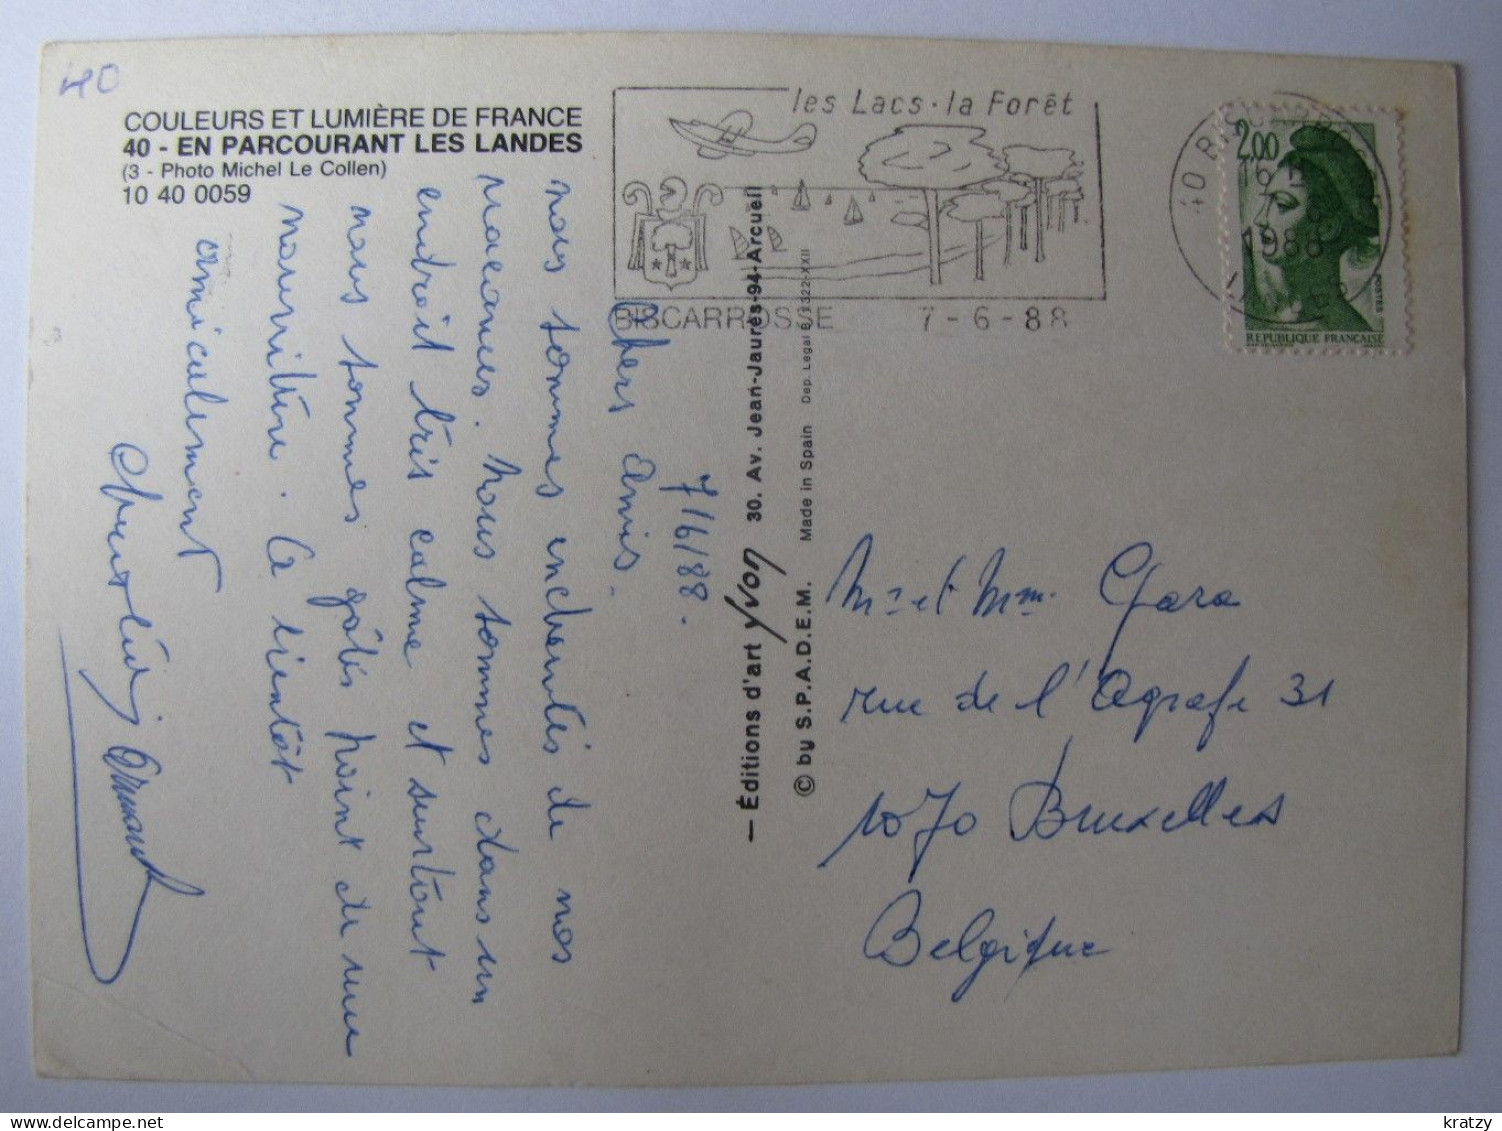 40
COULEURS ET LUMIÈRE DE FRANCE
40 - EN PARCOURANT LES LANDES
(3 - Photo Michel Le Collen)
10 40 0059
les Lacs · la Forêt
BISCARROSSE 7 - 6 - 88
2,00
1988
POSTES
REPUBLIQUE FRANCAISE
7/6/88.
Chers Amis.
nous sommes enchantés de nos
vacances. Nous sommes dans un
endroit très calme et surtout
nous sommes gâtés point de vue
nourriture. A bientôt
amicalement
— Éditions d'art Yvon 30. Av. Jean-Jaurès-94-Arcueil
© by S.P.A.D.E.M. Made in Spain Dep. Legal
Mr et Mme.
rue de l'Agrafe 31
1070 Bruxelles
Belgique
kratzy